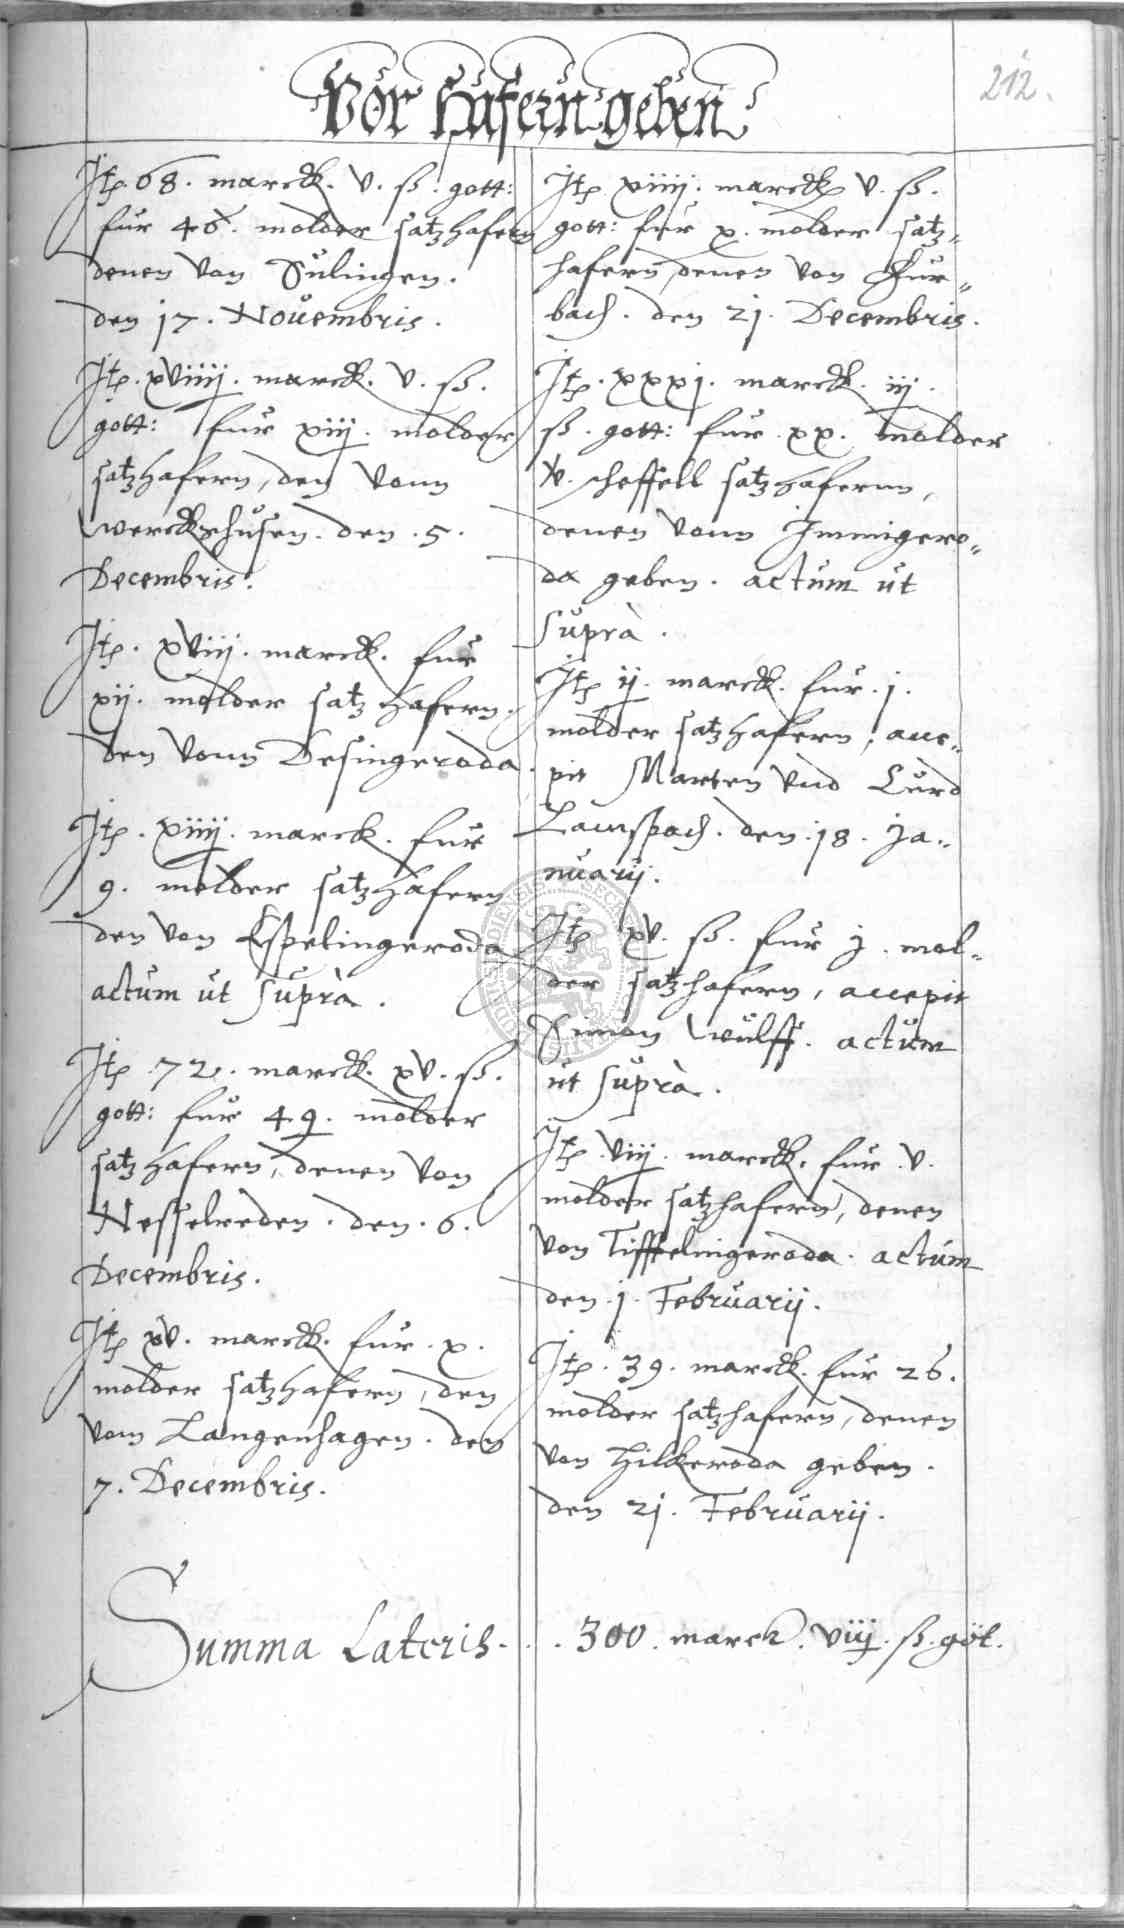 212.
Vor Hafern geben
Itp. 68. marck. v. ß. gott:
fur 46. molder satzhafern
denen von Sulingen.
den 17. Nouembris.
Itp. xviiij. marck. v. ß.
gott: fur xiij. molder
satzhafern, den vonn
Werckshusen. den .5.
Decembris.
Itp. xviij. marck. fur
xij. molder satzhafern.
den vonn Desingeroda.
Itp. xiiij. marck. fur
9. molder satzhafern
den von Espelingeroda
actum ut suprà.
Itp .72. marck. xv. ß.
gott: fur 49. molder
satzhafern, denen von
Nesselreden. den .6.
Decembris.
Itp xv. marck. fur .x.
molder satzhafern, den
vom Langenhagen. den
7. Decembris.
Itp xiiij. marck v. ß.
gott: fur x. molder satz„
hafern, denen von Fur„
bach. den 21. Decembris.
Itp. xxxj. marck. iij.
ß. gott: fur .xx. molder
v. scheffell satzhafernn,
denen vonn Immigero„
da geben. actum ut
suprà.
Itp ij. marck. fur .j.
molder satzhafern, acce„
pit Marten vnd Curd
den .18. Ja„
nuarij.
Itp xv. ß. fur j. mol„
der satzhafern, accepit
Simon Wulff. actum
ut suprà.
Itp .viij. marck. fur .v.
molder satzhafern, denen
von Tiffelingeroda. actum
den .j. Februarij.
Itp. 39. marck. fur 26.
molder satzhafern, denen
von Hilkeroda geben.
den 21. Februarij.
Summa Lateris. . . 300. marck. viij. ß. göt.